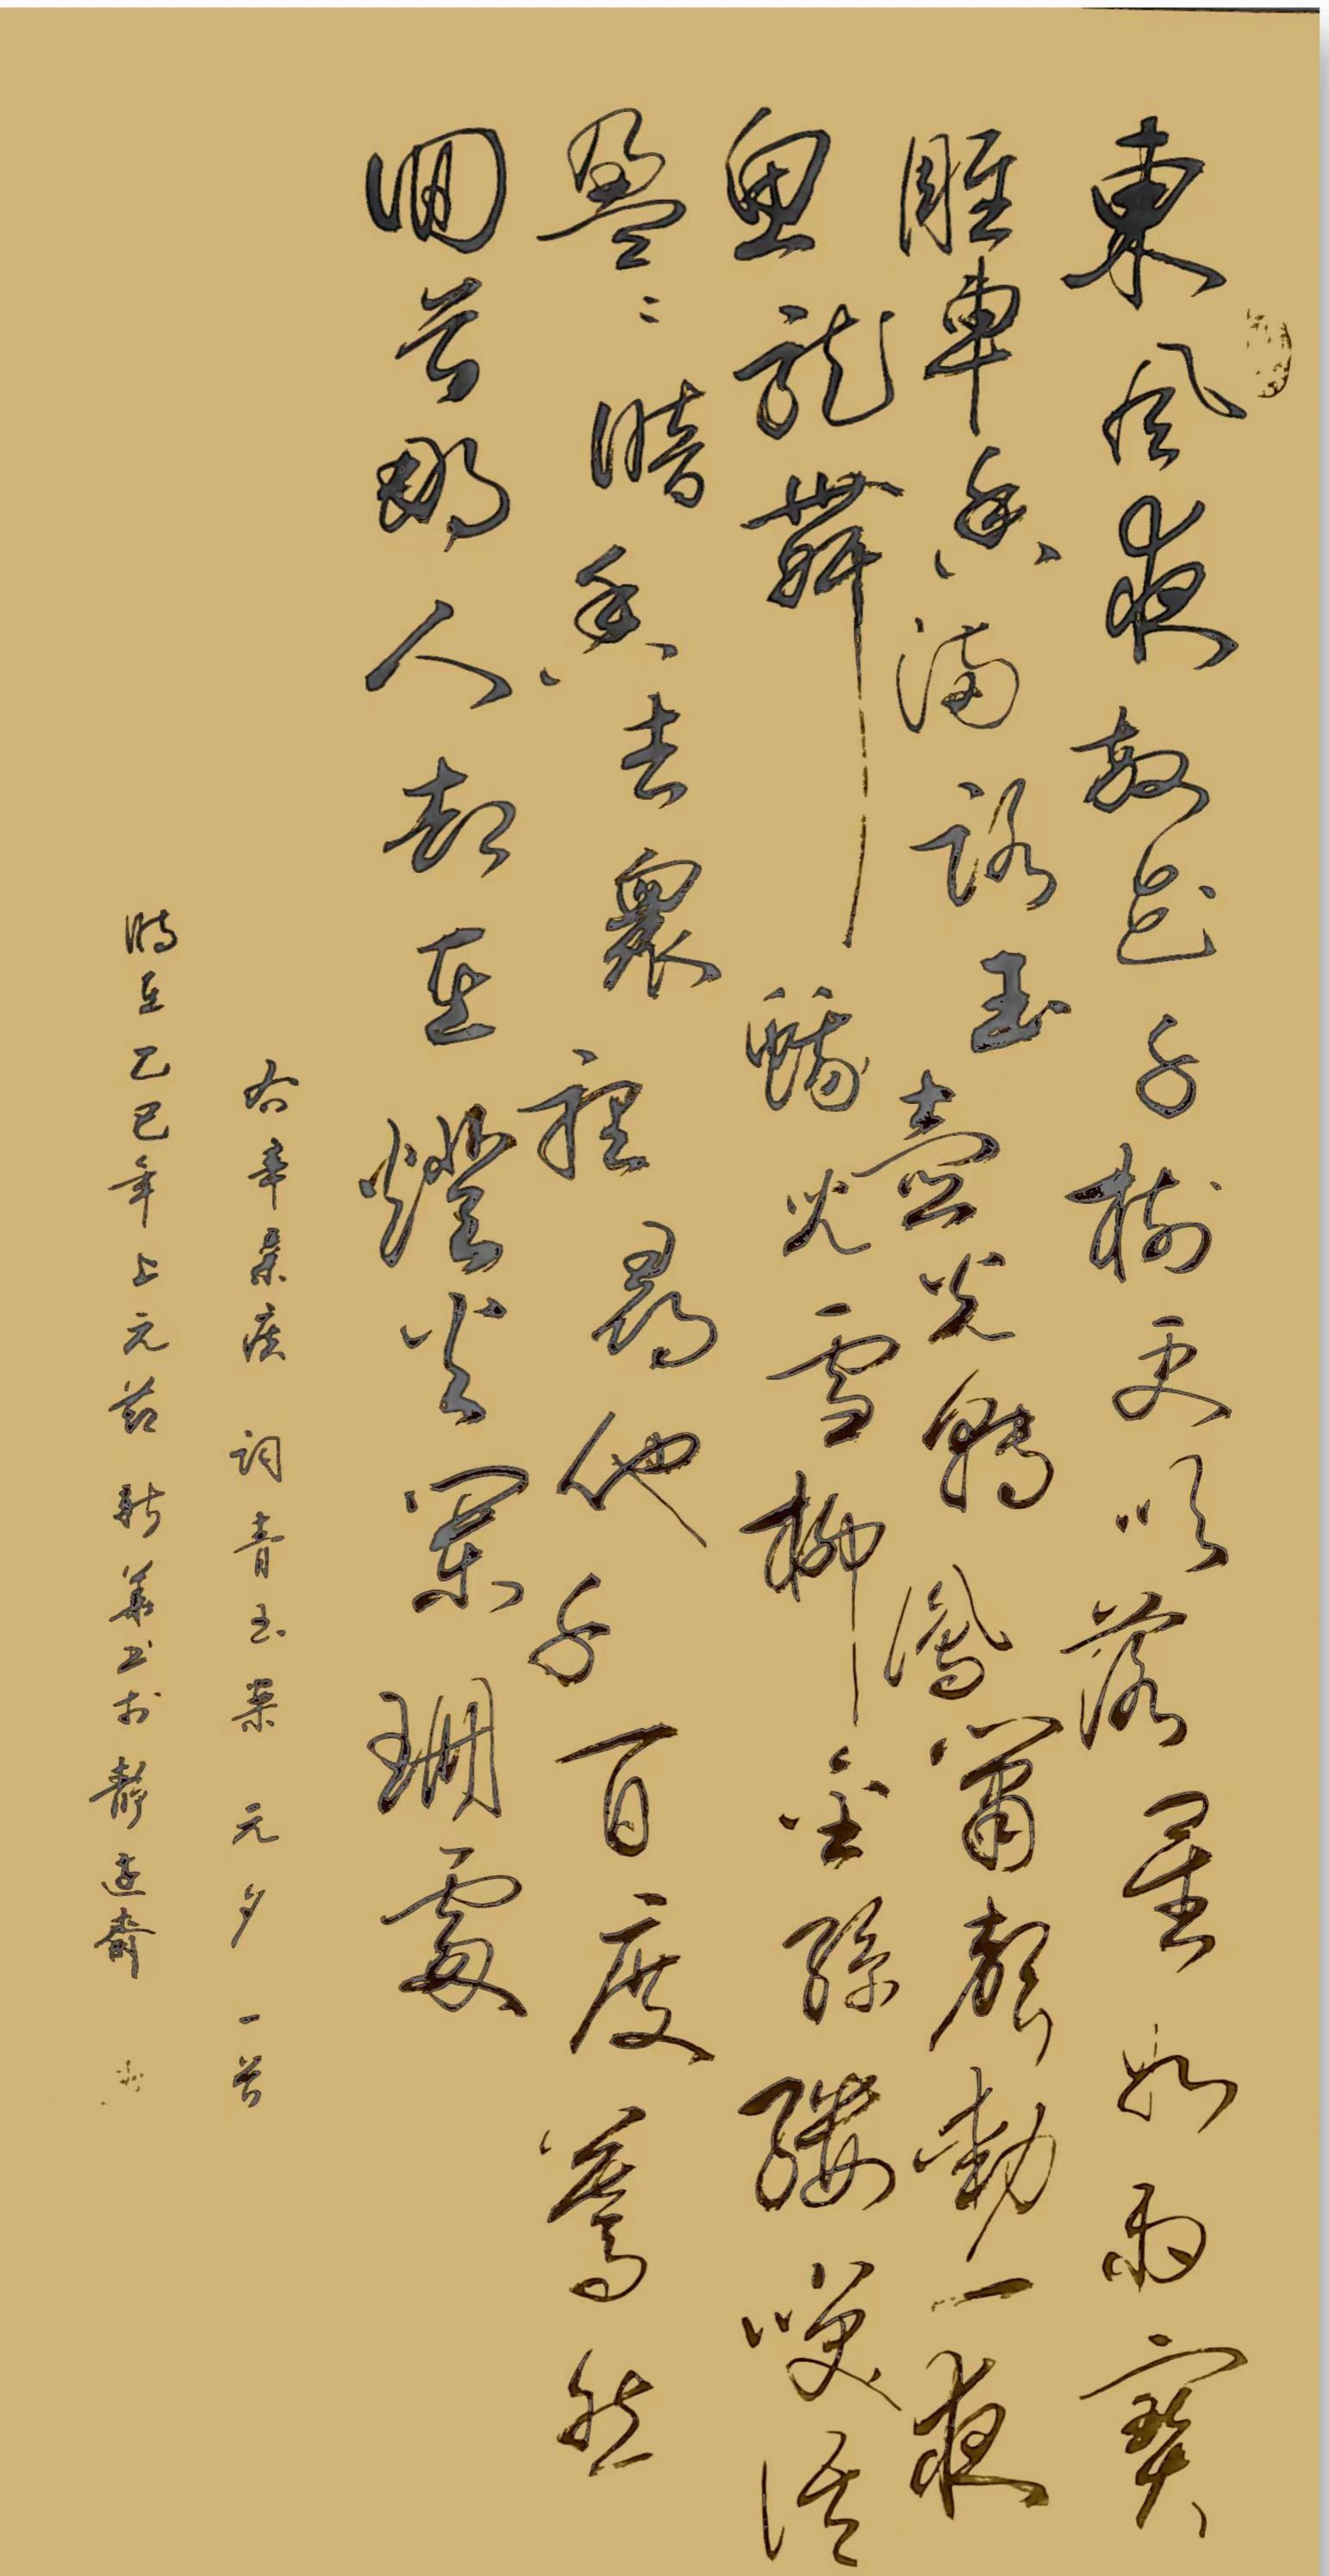 東風夜放花千樹更吹落星如雨寶
雕車香滿路玉壺光轉鳳簫聲動一夜
魚龍舞蛾兒雪柳金絲縷笑語
盈〻暗香去眾裡尋他千百度驀然
回首那人却在燈火闌珊處
右辛棄疾詞青玉案元夕一首
時在乙巳年上元節新華書於靜齋